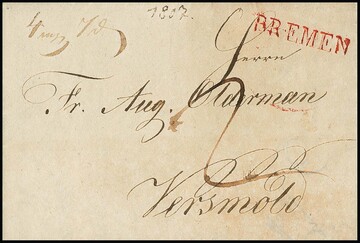 1817.
BREMEN
Herrn
Fr. Aug. Oldermann
Versmold